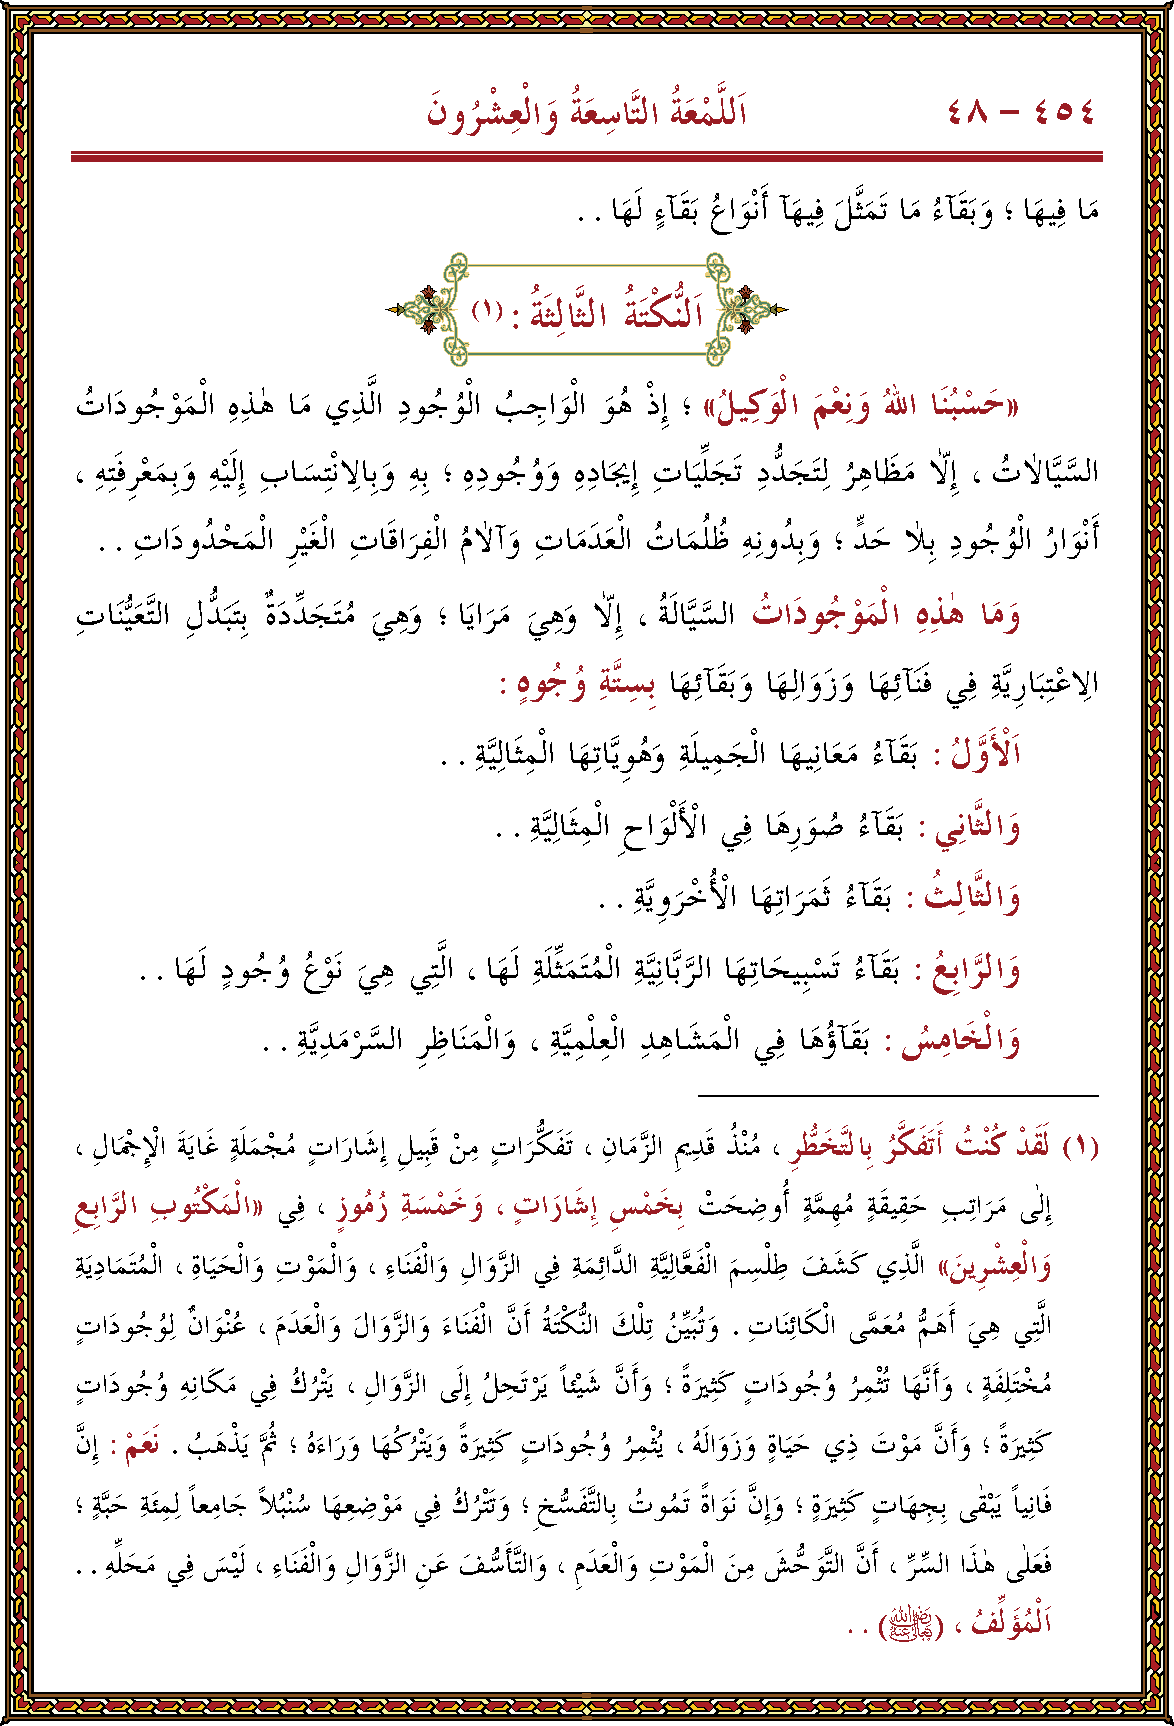 ٤٥٤ – ٤٨ اَللَّمْعَةُ التَّاسِعَةُ وَالْعِشْرُونَ
مَا فِيهَا ؛ وَبَقَآءُ مَا تَمَثَّلَ فِيهَآ أَنْوَاعُ بَقَآءٍ لَهَا . .
اَلنُّكْتَةُ الثَّالِثَةُ : (١)
«حَسْبُنَا اللهُ وَنِعْمَ الْوَكِيلُ» ؛ إِذْ هُوَ الْوَاجِبُ الْوُجُودِ الَّذِي مَا هٰذِهِ الْمَوْجُودَاتُ
السَّيَّالاٰتُ ، إِلّاٰ مَظَاهِرُ لِتَجَدُّدِ تَجَلِّيَاتِ إِيجَادِهِ وَوُجُودِهِ ؛ بِهِ وَبِالِانْتِسَابِ إِلَيْهِ وَبِمَعْرِفَتِهِ ،
أَنْوَارُ الْوُجُودِ بِلاٰ حَدٍّ ؛ وَبِدُونِهِ ظُلُمَاتُ الْعَدَمَاتِ وَآلاٰمُ الْفِرَاقَاتِ الْغَيْرِ الْمَحْدُودَاتِ . .
وَمَا هٰذِهِ الْمَوْجُودَاتُ السَّيَّالَةُ ، إِلّاٰ وَهِيَ مَرَايَا ؛ وَهِيَ مُتَجَدِّدَةٌ بِتَبَدُّلِ التَّعَيُّنَاتِ
الِاعْتِبَارِيَّةِ فِي فَنَآئِهَا وَزَوَالِهَا وَبَقَآئِهَا بِسِتَّةِ وُجُوهٍ :
اَلْأَوَّلُ : بَقَآءُ مَعَانِيهَا الْجَمِيلَةِ وَهُوِيَّاتِهَا الْمِثَالِيَّةِ . .
وَالثَّانِي : بَقَآءُ صُوَرِهَا فِي الْأَلْوَاحِ الْمِثَالِيَّةِ . .
وَالثَّالِثُ : بَقَآءُ ثَمَرَاتِهَا الْأُخْرَوِيَّةِ . .
وَالرَّابِعُ : بَقَآءُ تَسْبِيحَاتِهَا الرَّبَّانِيَّةِ الْمُتَمَثِّلَةِ لَهَا ، الَّتِي هِيَ نَوْعُ وُجُودٍ لَهَا . .
وَالْخَامِسُ : بَقَآؤُهَا فِي الْمَشَاهِدِ الْعِلْمِيَّةِ ، وَالْمَنَاظِرِ السَّرْمَدِيَّةِ . .
(١) لَقَدْ كُنْتُ أَتَفَكَّرُ بِالتَّخَطُّرِ ، مُنْذُ قَدِيمِ الزَّمَانِ ، تَفَكُّرَاتٍ مِنْ قَبِيلِ إِشَارَاتٍ مُجْمَلَةٍ غَايَةَ الْإِجْمَالِ ،
إِلٰى مَرَاتِبِ حَقِيقَةٍ مُهِمَّةٍ أُوضِحَتْ بِخَمْسِ إِشَارَاتٍ ، وَخَمْسَةِ رُمُوزٍ ، فِي «الْمَكْتُوبِ الرَّابِعِ
وَالْعِشْرِينَ» الَّذِي كَشَفَ طِلْسِمَ الْفَعَّالِيَّةِ الدَّائِمَةِ فِي الزَّوَالِ وَالْفَنَاءِ ، وَالْمَوْتِ وَالْحَيَاةِ ، الْمُتَمَادِيَةِ
الَّتِي هِيَ أَهَمُّ مُعَمَّى الْكَائِنَاتِ . وَتُبَيِّنُ تِلْكَ النُّكْتَةُ أَنَّ الْفَنَاءَ وَالزَّوَالَ وَالْعَدَمَ ، عُنْوَانٌ لِوُجُودَاتٍ
مُخْتَلِفَةٍ ، وَأَنَّهَا تُثْمِرُ وُجُودَاتٍ كَثِيرَةً ؛ وَأَنَّ شَيْئاً يَرْتَحِلُ إِلَى الزَّوَالِ ، يَتْرُكُ فِي مَكَانِهِ وُجُودَاتٍ
كَثِيرَةً ؛ وَأَنَّ مَوْتَ ذِي حَيَاةٍ وَزَوَالَهُ ، يُثْمِرُ وُجُودَاتٍ كَثِيرَةً وَيَتْرُكُهَا وَرَاءَهُ ؛ ثُمَّ يَذْهَبُ . نَعَمْ : إِنَّ
فَانِياً يَبْقٰى بِجِهَاتٍ كَثِيرَةٍ ؛ وَإِنَّ نَوَاةً تَمُوتُ بِالتَّفَسُّخِ ؛ وَتَتْرُكُ فِي مَوْضِعِهَا سُنْبُلاً جَامِعاً لِمِئَةِ حَبَّةٍ ؛
فَعَلٰى هٰذَا السِّرِّ ، أَنَّ التَّوَحُّشَ مِنَ الْمَوْتِ وَالْعَدَمِ ، وَالتَّأَسُّفَ عَنِ الزَّوَالِ وَالْفَنَاءِ ، لَيْسَ فِي مَحَلِّهِ . .
اَلْمُؤَلِّفُ ، (رضي الله تعالى عنه) . .